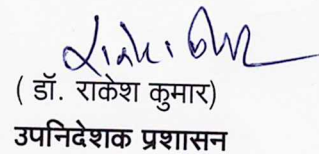 ( डॉ. राकेश कुमार)
उपनिदेशक प्रशासन